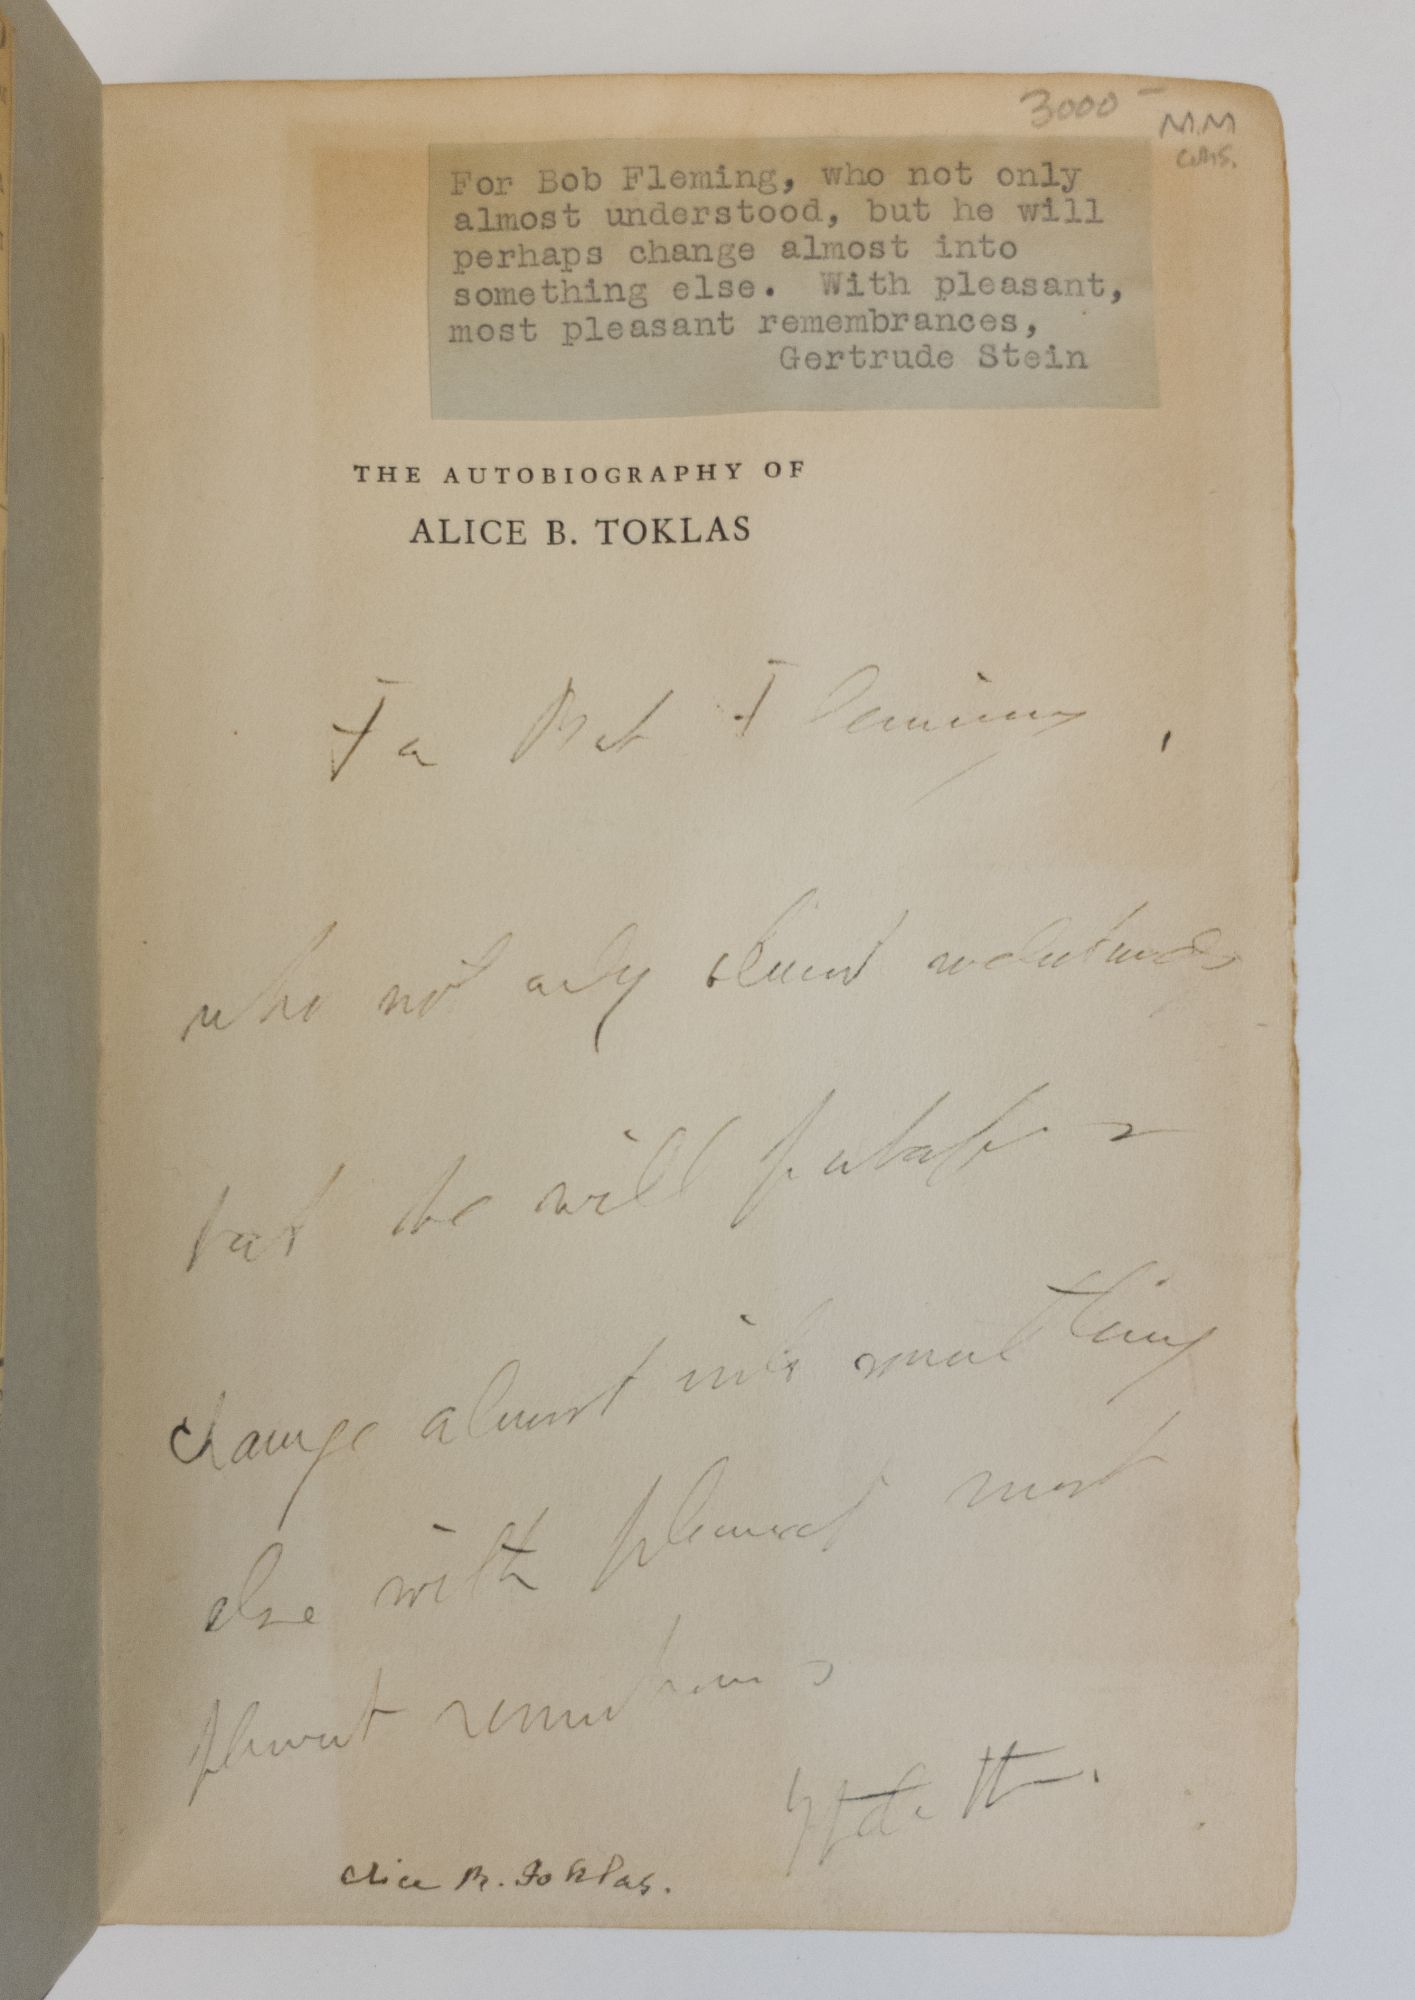 3000 -
M.M
For Bob Fleming, who not only
almost understood, but he will
perhaps change almost into
something else. With pleasant,
most pleasant remembrances,
Gertrude Stein
THE AUTOBIOGRAPHY OF
ALICE B. TOKLAS
For Bob Fleming,
who not only almost understands
but he will perhaps
change almost into something
else with pleasant most
pleasant remembrances
Gtrde Stn.
Alice B. Toklas.